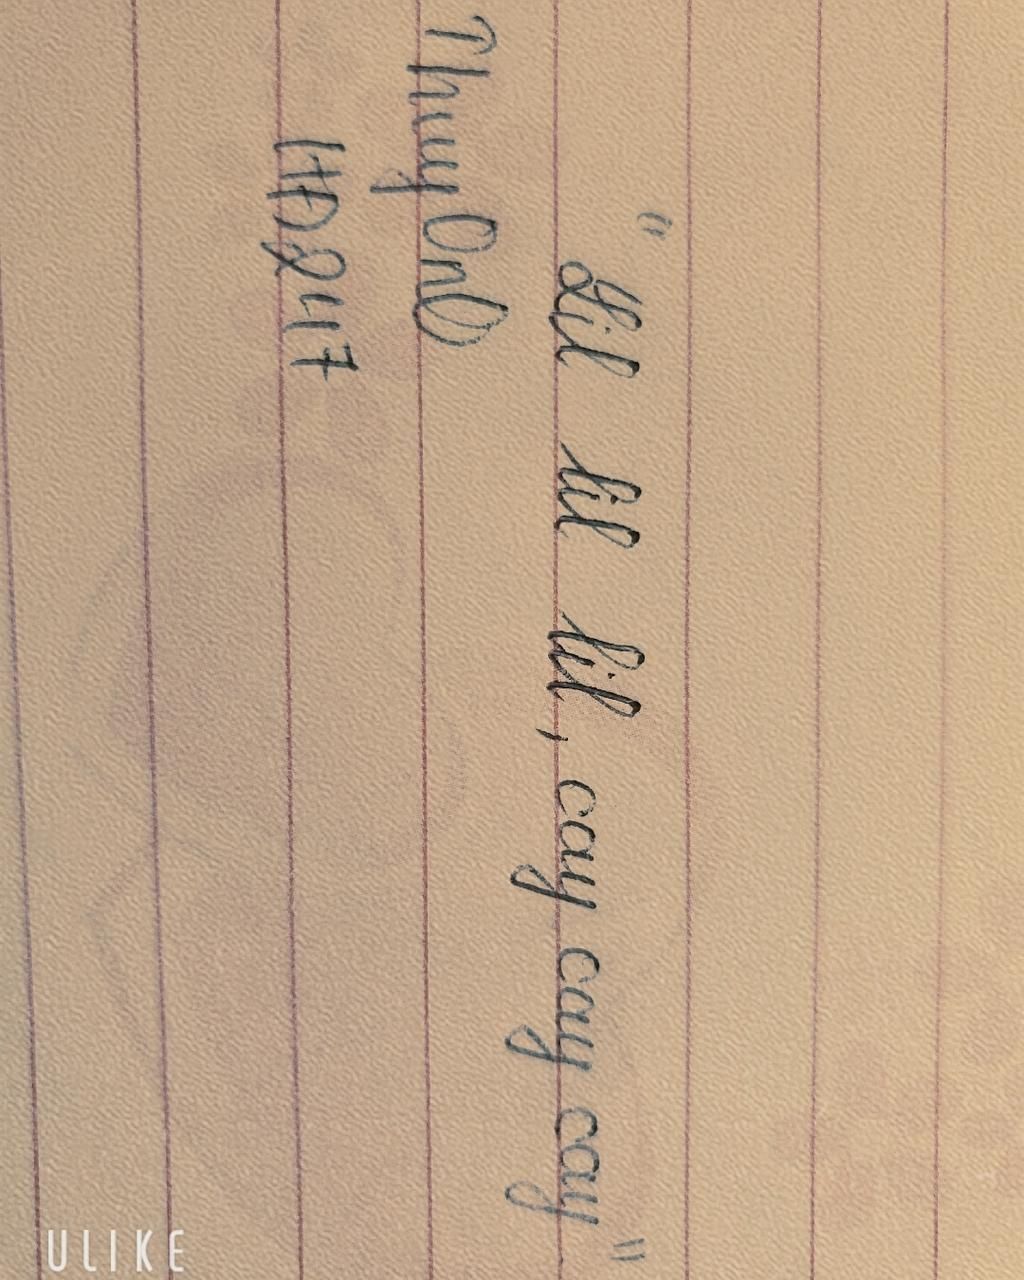 "Lil lil lil, cay cay cay"
Thuy Onl
HD2417
ULIKE